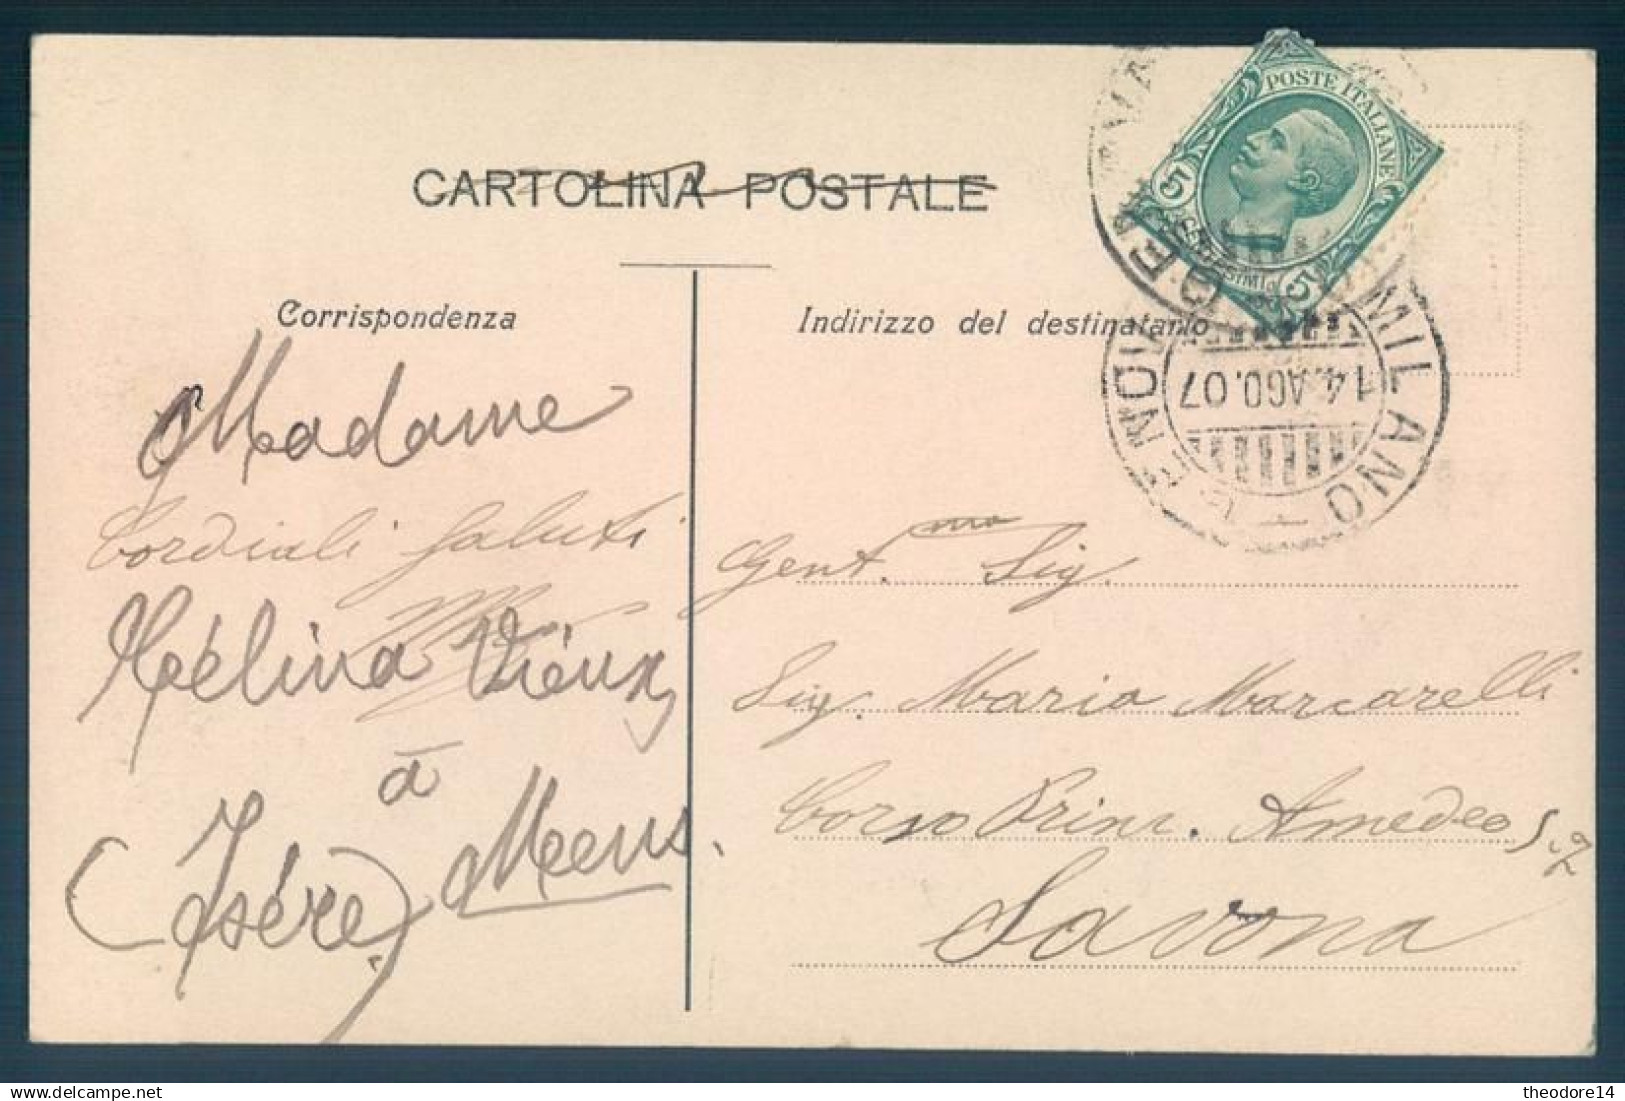 CARTOLINA POSTALE
POSTE ITALIANE
5 CENTESIMI 5
MILANO
14.AGO.07
Corrispondenza
Indirizzo del destinatario
Madame
Cordiali Saluti
Mélina Vieux
à
Mens.
(Isère)
Gent.mo Sig.
Sig. Mario Marcarelli
Corso Prin. Amedeo
Savona
theodore14